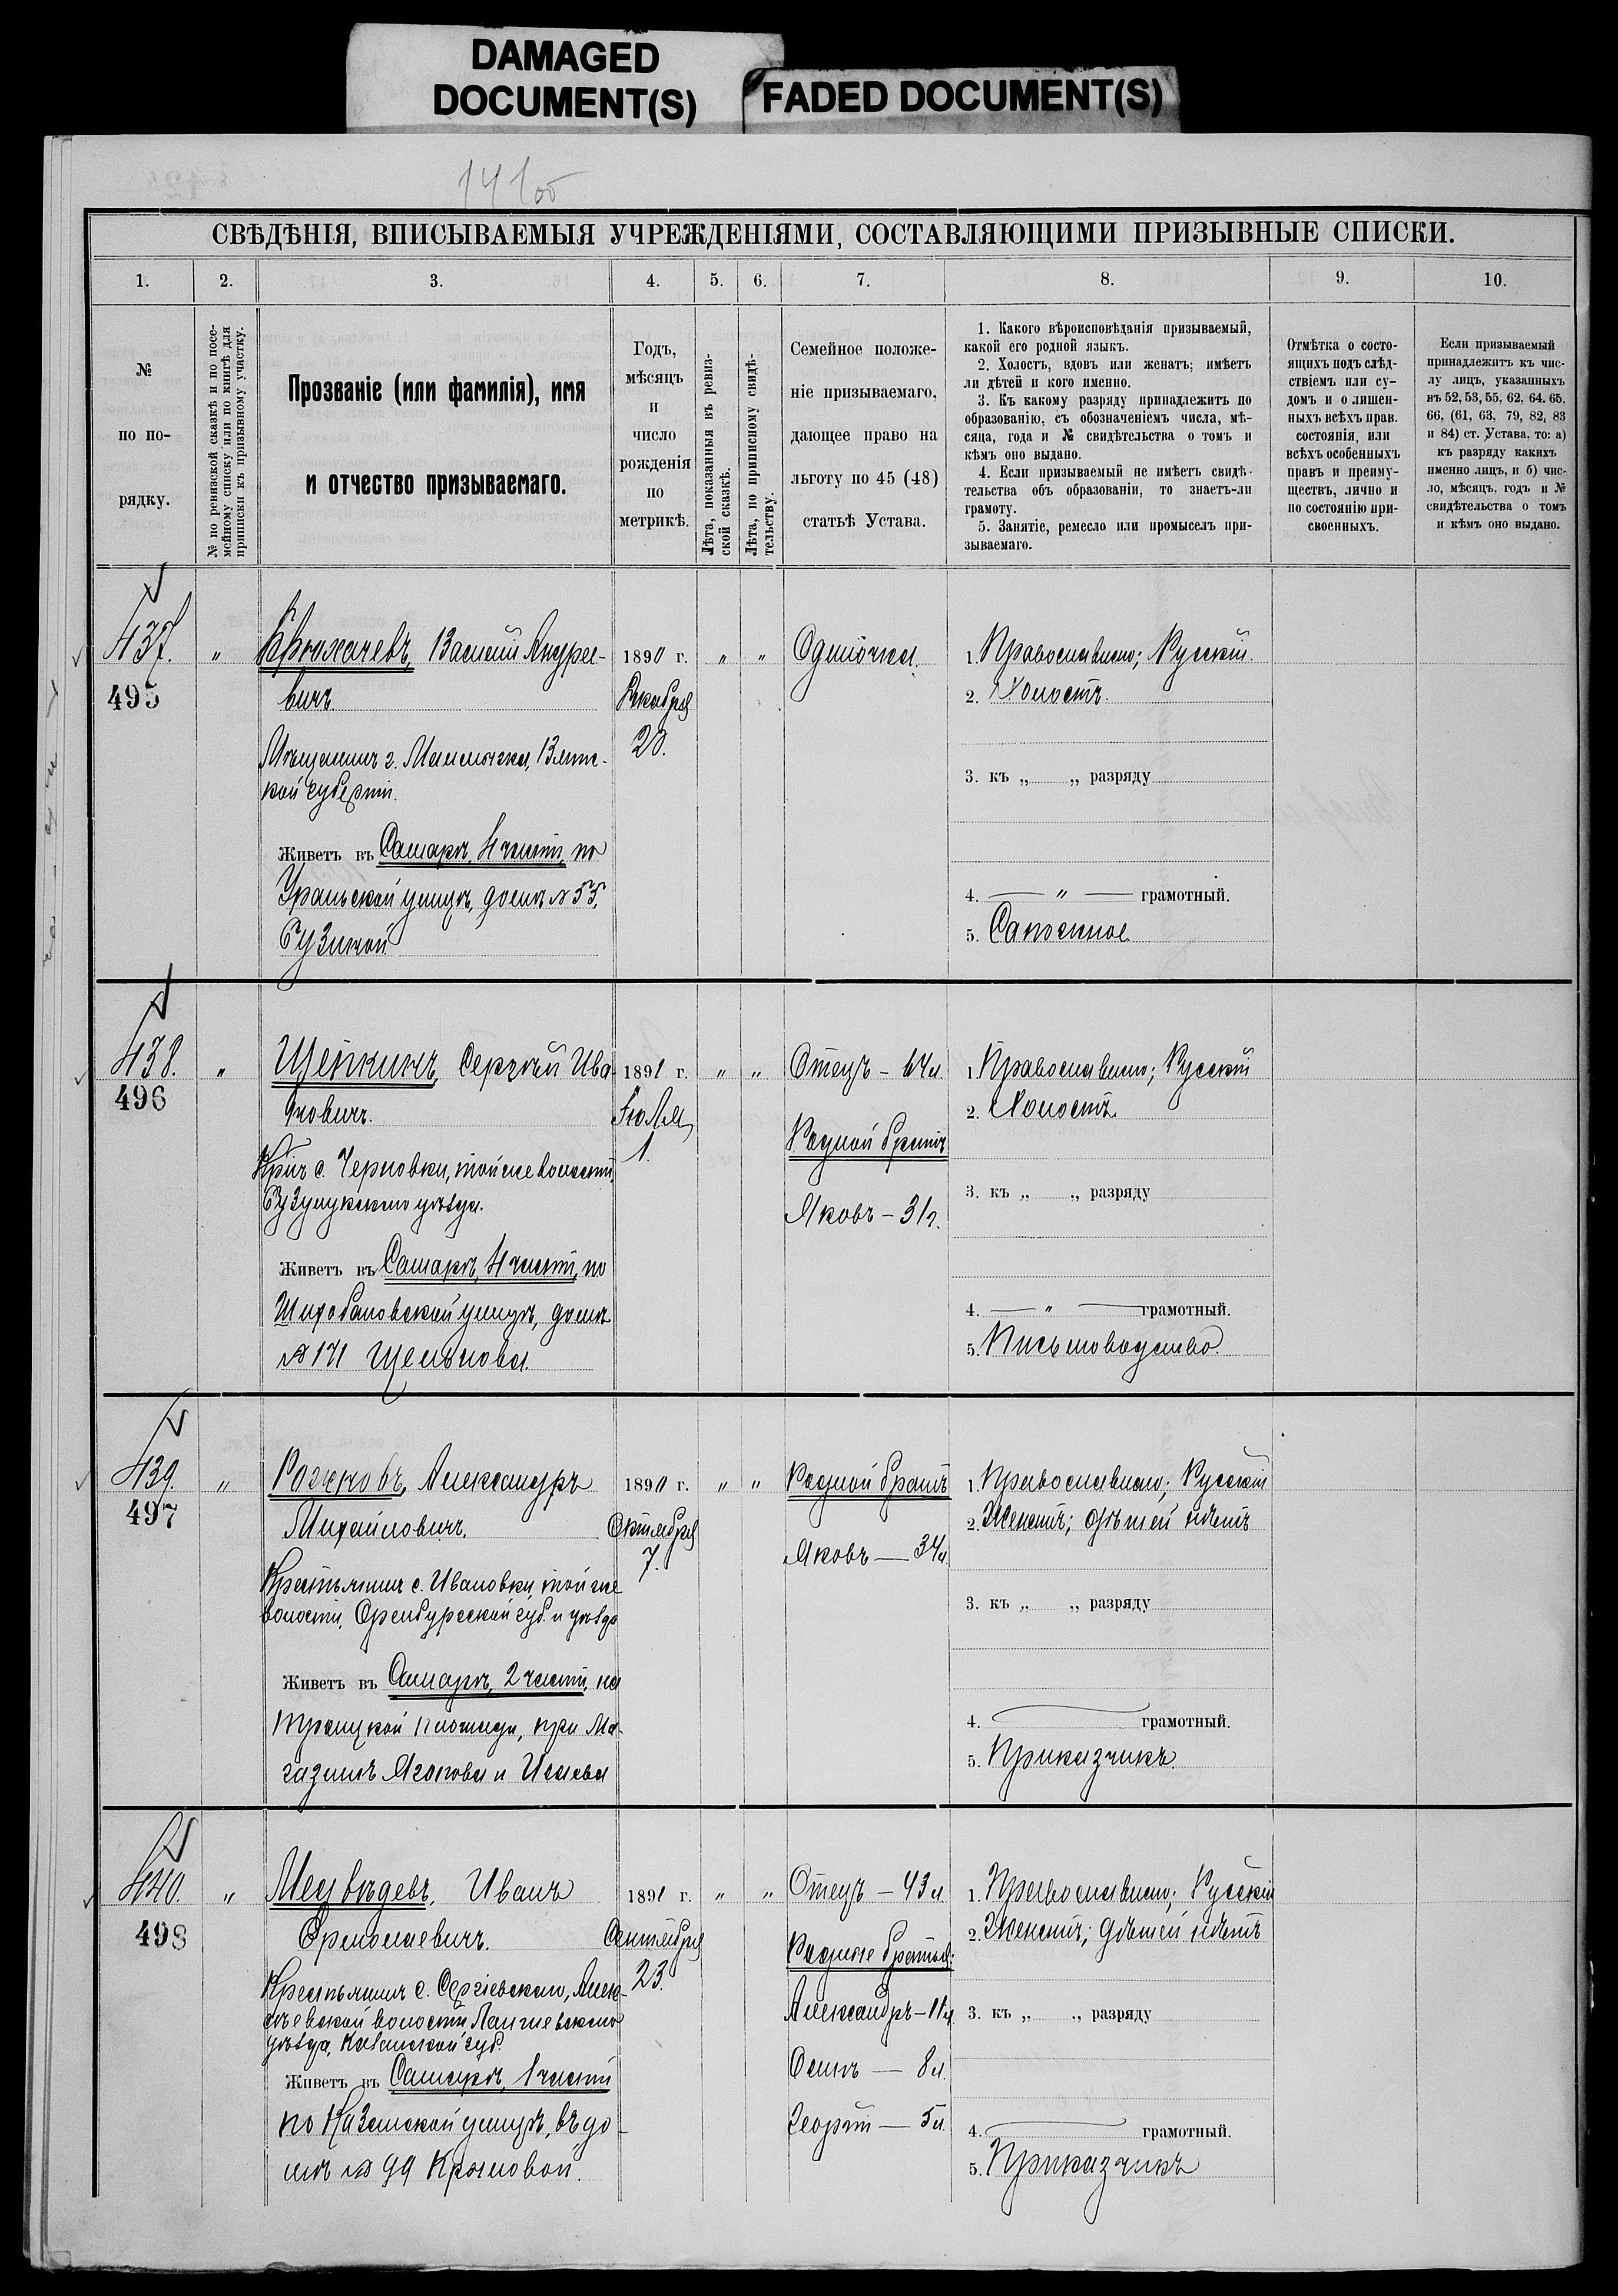 DAMAGED
DOCUMENT(S)
FADED DOCUMENT(S)
141об
СВѢДѢНІЯ, ВПИСЫВАЕМЫЯ УЧРЕЖДЕНІЯМИ, СОСТАВЛЯЮЩИМИ ПРИЗЫВНЫЕ СПИСКИ.
1. 2. 3. 4. 5. 6. 7. 8. 9. 10.
№
по по-
рядку.
№ по ревизской сказкѣ и по посе-
мейному списку или по книгѣ для
приписки къ призывному участку.
Прозваніе (или фамилія), имя
и отчество призываемаго.
Годъ,
мѣсяцъ
и
число
рожденія
по
метрикѣ.
Лѣта, показанныя въ ревиз-
ской сказкѣ.
Лѣта, по приписному свидѣ-
тельству.
Семейное положе-
ніе призываемаго,
дающее право на
льготу по 45 (48)
статьѣ Устава.
1. Какого вѣроисповѣданія призываемый,
какой его родной языкъ.
2. Холостъ, вдовъ или женатъ; имѣетъ
ли дѣтей и кого именно.
3. Къ какому разряду принадлежитъ по
образованію, съ обозначеніемъ числа, мѣ-
сяца, года и № свидѣтельства о томъ и
кѣмъ оно выдано.
4. Если призываемый не имѣетъ свидѣ-
тельства объ образованіи, то знаетъ-ли
грамоту.
5. Занятіе, ремесло или промыселъ при-
зываемаго.
Отмѣтка о состо-
ящихъ подъ слѣд-
ствіемъ или су-
домъ и о лишен-
ныхъ всѣхъ прав.
состоянія, или
всѣхъ особенныхъ
правъ и преиму-
ществъ, лично и
по состоянію при-
своенныхъ.
Если призываемый
принадлежитъ къ чис-
лу лицъ, указанныхъ
въ 52, 53, 55, 62, 64, 65,
66, (61, 63, 79, 82, 83
и 84) ст. Устава, то: а)
къ разряду какихъ
именно лицъ, и б) чис-
ло, мѣсяцъ, годъ и №
свидѣтельства о томъ
и кѣмъ оно выдано.
437.
495
„
Крюкачевъ, Василій Андрее-
вичъ.
Мѣщанинъ г. Мамыжа, Вятс-
кой губерніи.
Живетъ въ Самарѣ, 4 части, по
Уральской улицѣ, домъ № 55,
Бузиной
1890 г.
Декабря
20.
„ „
Одиночка.
1. Православное; Русскій.
2. Холостъ.
3. къ „ „ разряду
4. — „ — грамотный.
5. Сапожное
438.
496
„
Щепкинъ, Сергѣй Ива-
новичъ.
Крнъ с. Черновки, той же волости,
Бузулукскаго уѣзда.
Живетъ въ Самарѣ, 4 части, по
Шихобаловской улицѣ, домъ
№ 171 Щелокова
1891 г.
Іюля
1.
„ „
Отецъ – 64 л.
Родной братъ
Яковъ – 31 г.
1. Православное; Русскій
2. Холостъ
3. къ „ „ разряду
4. — „ — грамотный.
5. Письмоводство
439.
497
„
Рожковъ, Александръ
Михайловичъ.
Крестьянинъ с. Ивановки, той же
волости, Оренбургской губ. и уѣзда
Живетъ въ Самарѣ, 2 части, на
Троицкой площади, при Ма-
газинѣ Агапова и Исаева
1890 г.
Октября
7.
„ „
Родной братъ
Яковъ — 34 л.
1. Православное; Русскій
2. Женатъ; дѣтей нѣтъ
3. къ „ „ разряду
4. — грамотный.
5. Приказчикъ.
440.
498
„
Медвѣдевъ, Иванъ
Ермолаевичъ.
Крестьянинъ с. Сергіевскаго, Алек-
сѣевской волости Лаишевскаго
уѣзда, Казанской губ.
Живетъ въ Самарѣ, 1 части
по Казанской улицѣ, въ до-
мѣ № 99 Крыловой.
1891 г.
Сентября
23.
„ „
Отецъ – 43 л.
Родные братья:
Александръ – 11 л.
Осипъ — 8 л.
Георгій — 5 л.
1. Православное; Русскій
2. Женатъ; дѣтей нѣтъ
3. къ „ „ разряду
4. — грамотный.
5. Приказчикъ